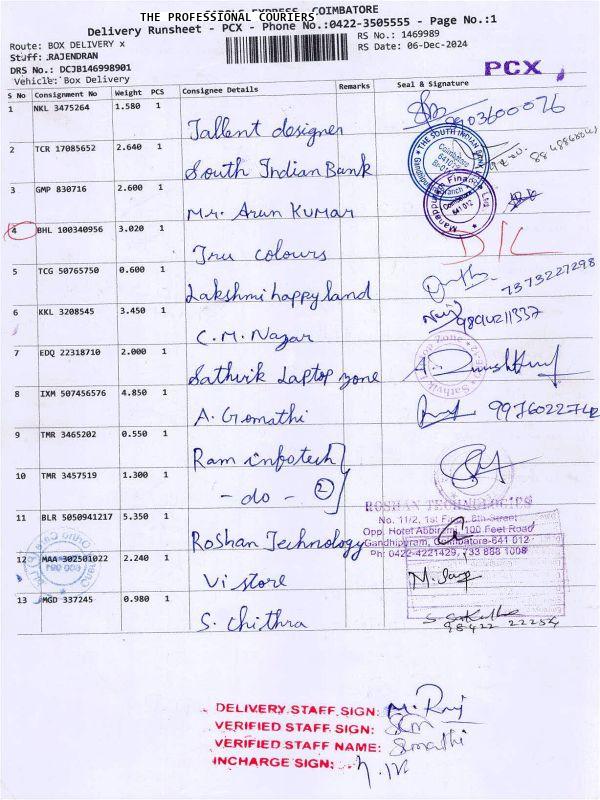 THE PROFESSIONAL COURIERS
COIMBATORE
Delivery Runsheet - PCX - Phone No.:0422-3505555 - Page No.:1
Route: BOX DELIVERY x
RS No.: 1469989
Staff: RAJENDRAN
RS Date: 06-Dec-2024
DRS No.: DCJB146998901
Vehicle: Box Delivery
PCX
S No Consignment No Weight PCS Consignee Details Remarks Seal & Signature
1 NKL 3475264 1.580 1 Tallent designer 9903600076
2 TCR 17085652 2.640 1 South Indian Bank
3 GMP 830716 2.600 1 Mr. Arun Kumar
4 BHL 100340956 3.020 1 Tru colours D/L
5 TCG 50765750 0.600 1 Lakshmi happy land 7373227298
6 KKL 3208545 3.450 1 C.M. Nagar 9894211337
7 EDQ 22318710 2.000 1 Sathvik Laptop zone
8 IXM 507456576 4.850 1 A. Gomathi
9 TMR 3465202 0.550 1 Ram infotech
10 TMR 3457519 1.300 1 - do - 2
11 BLR 5050941217 5.350 1 Roshan Technology
ROSHAN TECHNOLOGIES
No. 11/2, 1st Floor, 8th Street
Opp. Hotel Abbirami, 100 Feet Road
Gandhipuram, Coimbatore-641 012
Ph: 0422-4221429,
12 MAA 302501022 2.240 1 Vi store
13 MGD 337245 0.980 1 S. Chithra
98422 22254
DELIVERY STAFF SIGN: M. Raj
VERIFIED STAFF SIGN:
VERIFIED STAFF NAME: Smathi
INCHARGE SIGN: